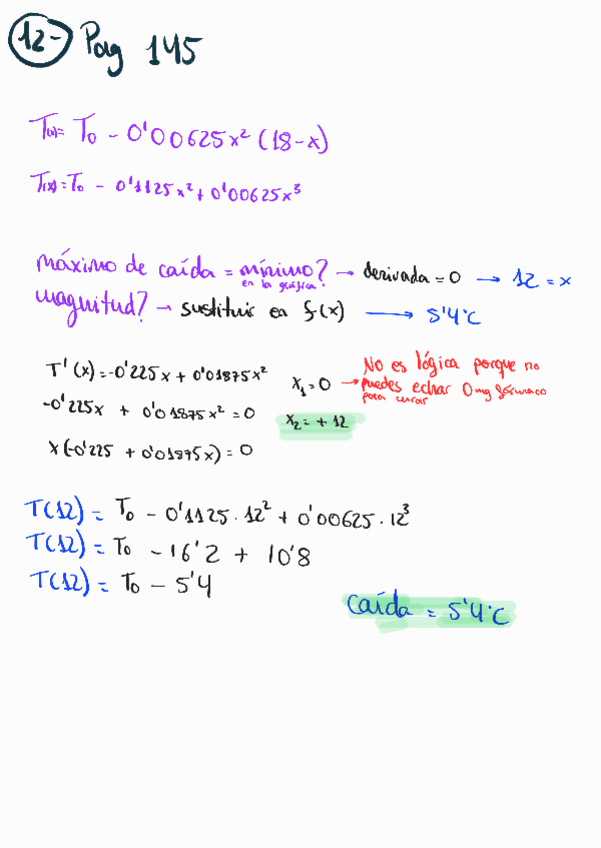 12- Pag 145
T(x)= T₀ - 0'00625x² (18-x)
T(x)=T₀ - 0'1125x² + 0'00625x³
máximo de caída = mínimo? → derivada = 0 → 12 = x
en la gráfica
magnitud? → sustituir en f(x) → 5'4°C
T'(x)=-0'225x + 0'01875x²
-0'225x + 0'01875x² = 0
x(-0'225 + 0'01875x) = 0
x₁ = 0 → No es lógica porque no
puedes echar 0mg fármaco
para curar
x₂ = + 12
T(12) = T₀ - 0'1125 · 12² + 0'00625 · 12³
T(12) = T₀ - 16'2 + 10'8
T(12) = T₀ - 5'4
caída = 5'4°C